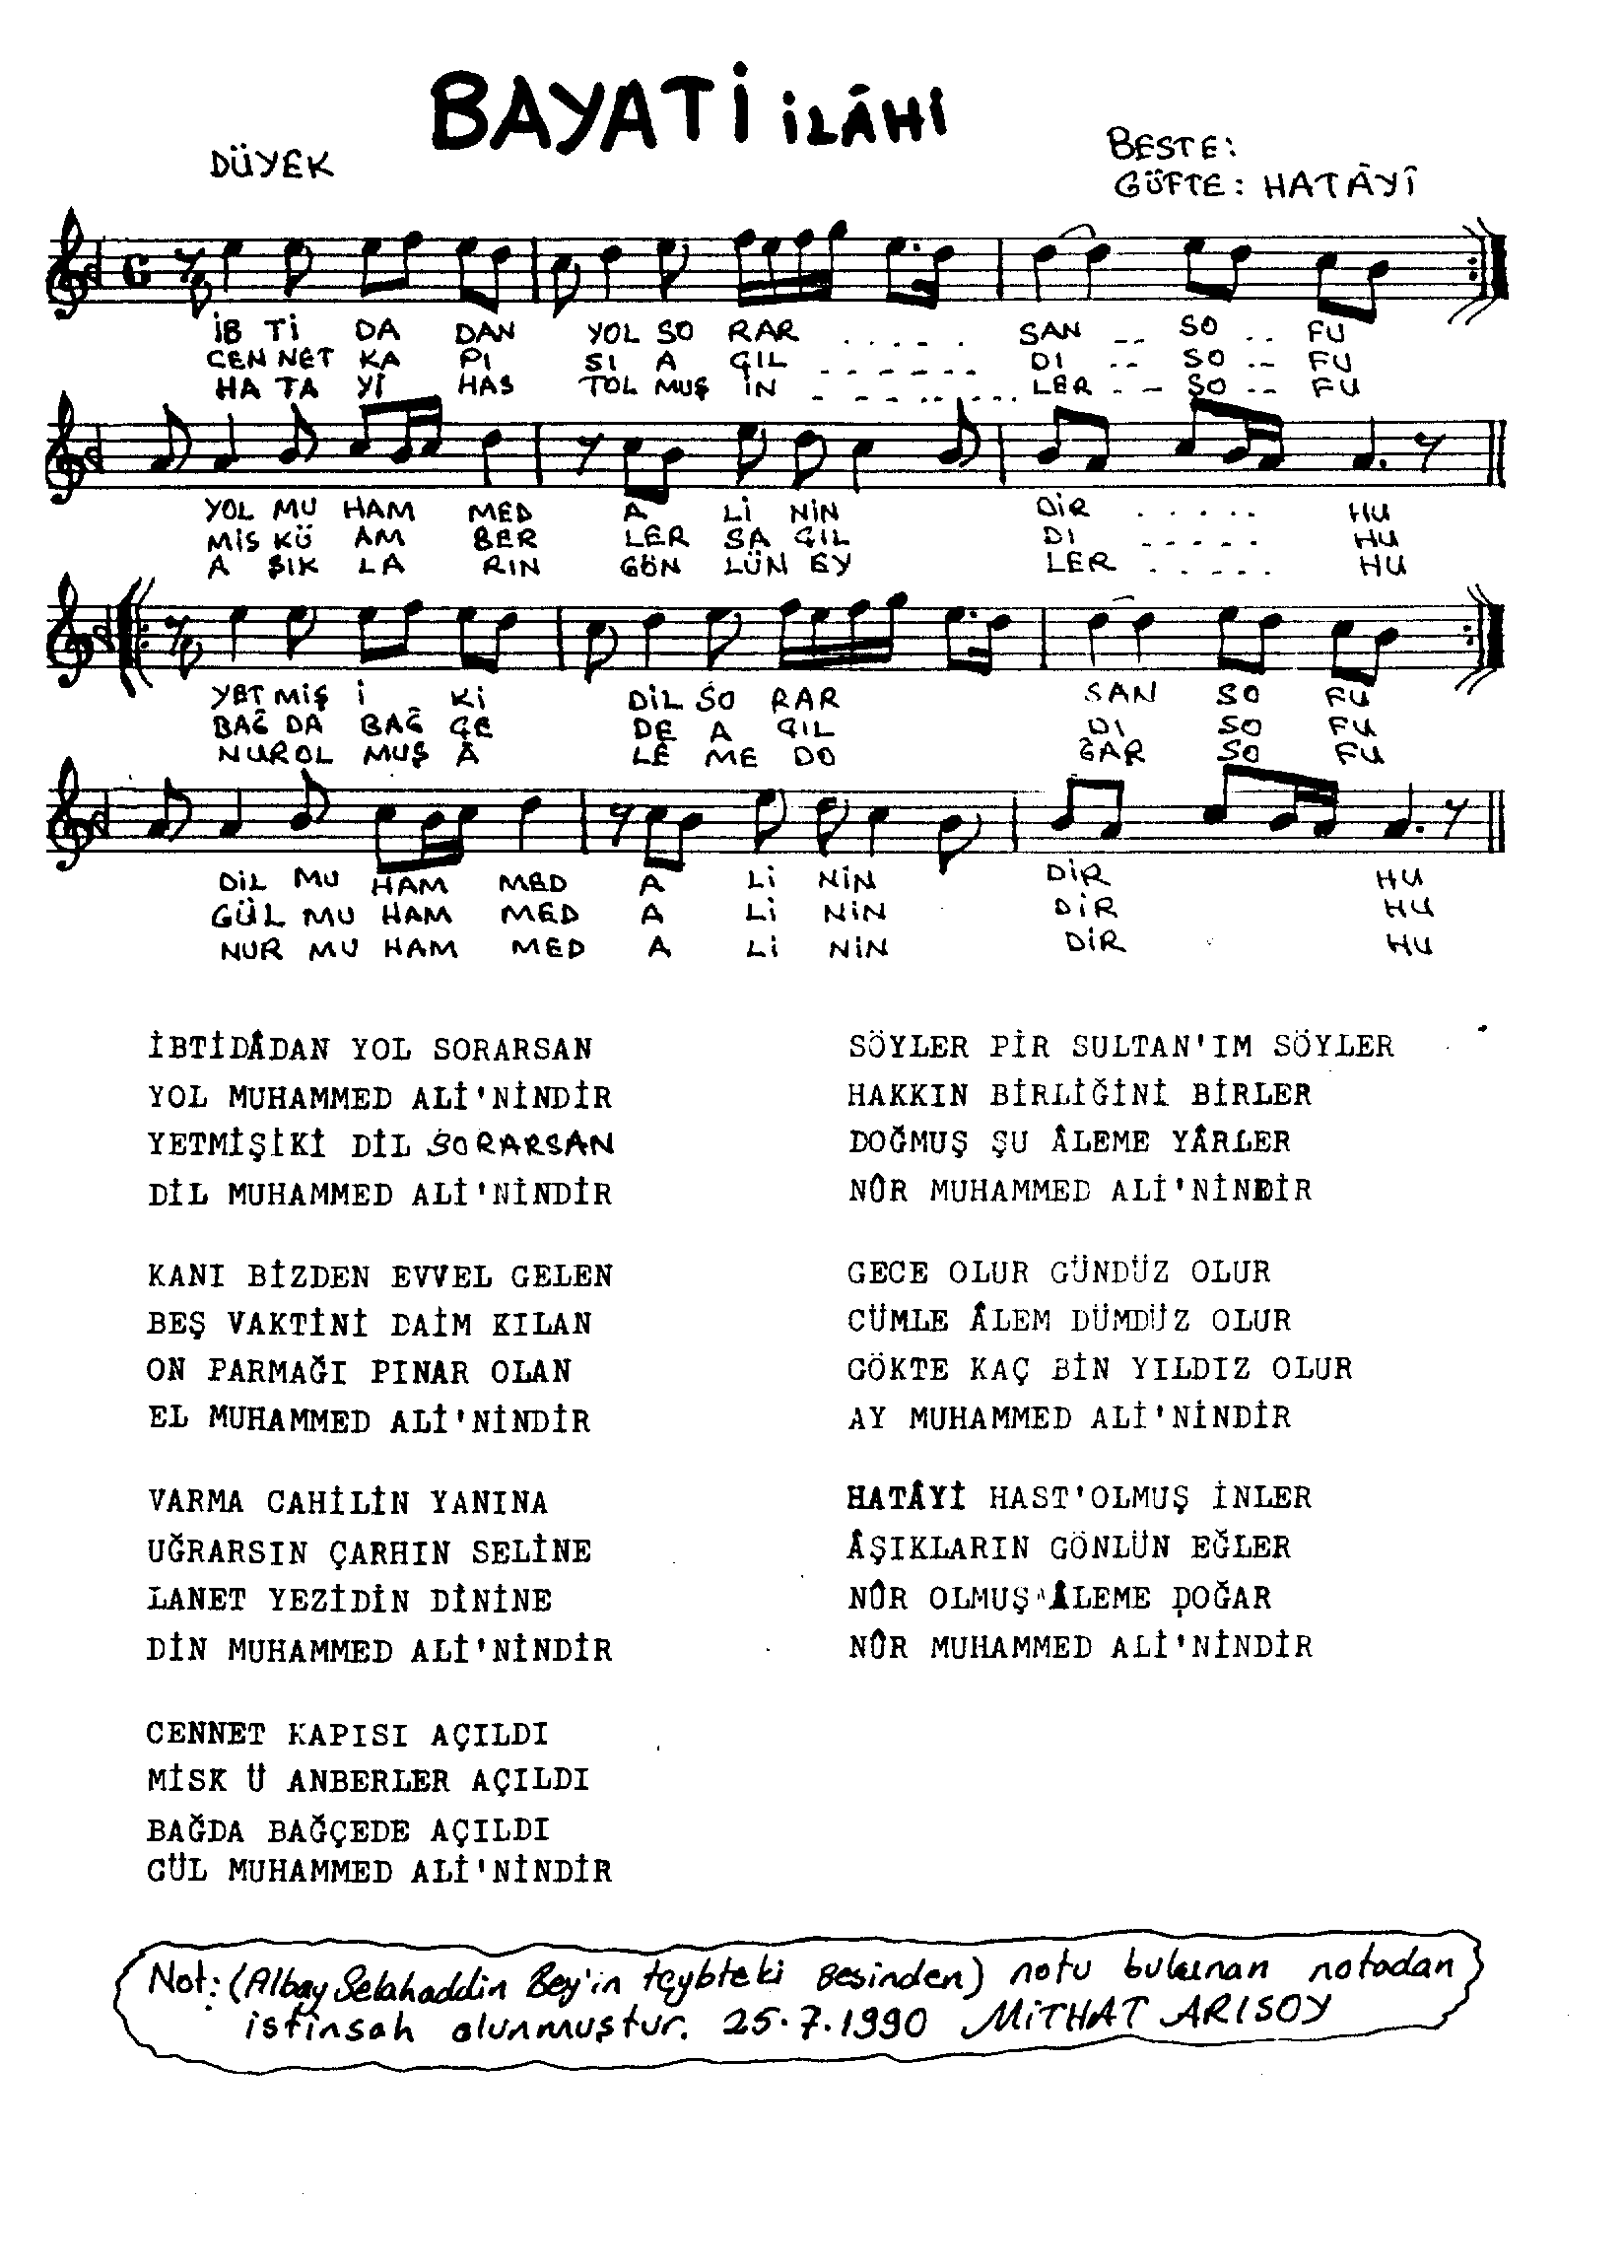 BAYATİ İLÂHİ
DÜYEK
BESTE:
GÜFTE: HATÂYÎ
İB Tİ DA DAN YOL SO RAR ...... SAN -- SO .. FU
CEN NET KA PI SI A ÇIL ------ DI -- SO -- FU
HA TA Yİ HAS TOL MUŞ İN ......... LER -- SO -- FU
YOL MU HAM MED A Lİ NİN DİR ..... HU
MİS KÜ AM BER LER SA ÇIL DI ----- HU
A ŞIK LA RIN GÖN LÜN EY LER ..... HU
YET MİŞ İ Kİ DİL SO RAR SAN SO FU
BAĞ DA BAĞ ÇE DE A ÇIL DI SO FU
NUR OL MUŞ Â LE ME DO ĞAR SO FU
DİL MU HAM MED A Lİ NİN DİR HU
GÜL MU HAM MED A Lİ NİN DİR HU
NUR MU HAM MED A Lİ NİN DİR HU
İBTİDÂDAN YOL SORARSAN
YOL MUHAMMED ALİ'NİNDİR
YETMİŞİKİ DİL SORARSAN
DİL MUHAMMED ALİ'NİNDİR
KANI BİZDEN EVVEL GELEN
BEŞ VAKTİNİ DAİM KILAN
ON PARMAĞI PINAR OLAN
EL MUHAMMED ALİ'NİNDİR
VARMA CAHİLİN YANINA
UĞRARSIN ÇARHIN SELİNE
LANET YEZİDİN DİNİNE
DİN MUHAMMED ALİ'NİNDİR
CENNET KAPISI AÇILDI
MİSK Ü ANBERLER AÇILDI
BAĞDA BAĞÇEDE AÇILDI
GÜL MUHAMMED ALİ'NİNDİR
SÖYLER PİR SULTAN'IM SÖYLER
HAKKIN BİRLİĞİNİ BİRLER
DOĞMUŞ ŞU ÂLEME YÂRLER
NÛR MUHAMMED ALİ'NİNDİR
GECE OLUR GÜNDÜZ OLUR
CÜMLE ÂLEM DÜMDÜZ OLUR
GÖKTE KAÇ BİN YILDIZ OLUR
AY MUHAMMED ALİ'NİNDİR
HATÂYİ HAST'OLMUŞ İNLER
ÂŞIKLARIN GÖNLÜN EĞLER
NÛR OLMUŞ ÂLEME DOĞAR
NÛR MUHAMMED ALİ'NİNDİR
Not: (Albay Selahaddin Bey'in teybteki sesinden) notu bulunan notadan
istinsah olunmuştur. 25.7.1990 MİTHAT ARISOY